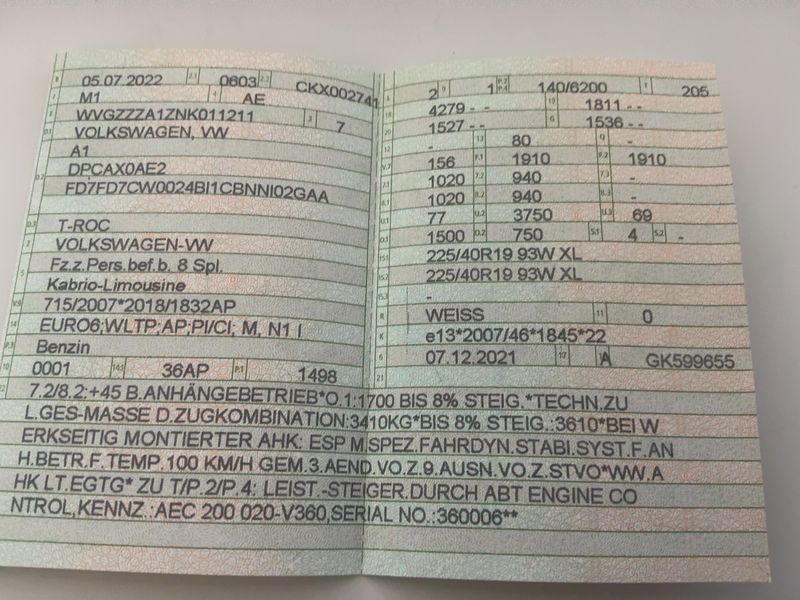 05.07.2022 2.1 0603 2.2 CKX002741
M1 AE
WVGZZZA1ZNK011211 3 7
VOLKSWAGEN, VW
A1
DPCAX0AE2
FD7FD7CW0024BI1CBNNI02GAA
T-ROC
VOLKSWAGEN-VW
Fz.z.Pers.bef.b. 8 Spl.
Kabrio-Limousine
715/2007*2018/1832AP
EURO6;WLTP;AP;PI/CI; M, N1 I
Benzin
0001 14.1 36AP P.1 1498
L 2 9 1 P.2 P.4 140/6200 T 205
18 4279 - - 19 1811 - -
20 1527 - - G 1536 - -
12 - 13 80 Q -
V.7 156 F.1 1910 F.2 1910
7.1 1020 7.2 940 7.3 -
8.1 1020 8.2 940 8.3 -
U.1 77 U.2 3750 U.3 69
O.1 1500 O.2 750 S.1 4 S.2 -
15.1 225/40R19 93W XL
15.2 225/40R19 93W XL
15.3 -
R WEISS 11 0
K e13*2007/46*1845*22
6 07.12.2021 17 A 16 GK599655
21
7.2/8.2:+45 B.ANHÄNGEBETRIEB*O.1:1700 BIS 8% STEIG.*TECHN.ZU
L.GES-MASSE D.ZUGKOMBINATION:3410KG*BIS 8% STEIG.:3610*BEI W
ERKSEITIG MONTIERTER AHK: ESP M.SPEZ.FAHRDYN.STABI.SYST.F.AN
H.BETR.F.TEMP.100 KM/H GEM.3.AEND.VO.Z.9.AUSN.VO.Z.STVO*WW.A
HK LT.EGTG* ZU T/P.2/P.4: LEIST.-STEIGER.DURCH ABT ENGINE CO
NTROL,KENNZ.:AEC 200 020-V360,SERIAL NO.:360006**